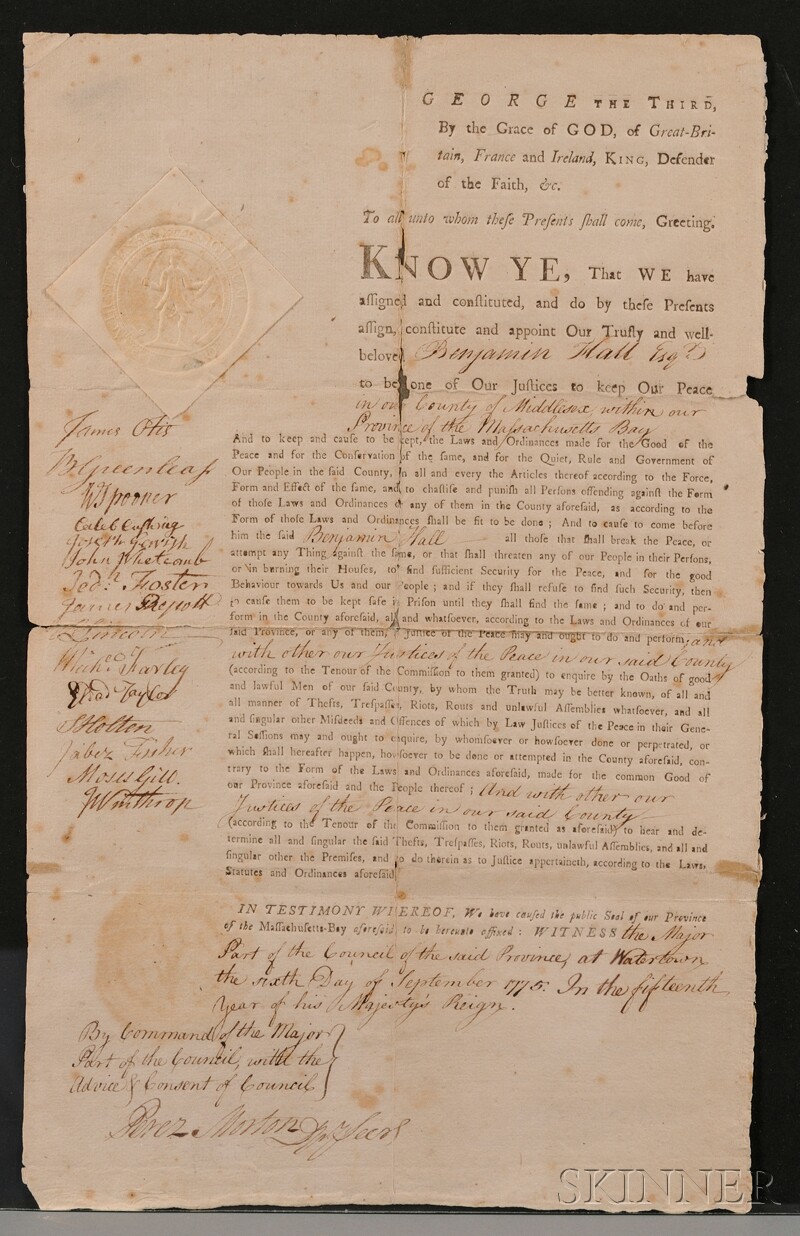 GEORGE THE THIRD,
By the Grace of GOD, of Great-Bri-
tain, France and Ireland, KING, Defender
of the Faith, &c.
To all unto whom these Presents shall come, Greeting.
KNOW YE, That WE have
assigned and constituted, and do by these Presents
assign, constitute and appoint Our Trusty and well-
beloved Benjamin Hall Esqr
to be one of Our Justices to keep Our Peace
in our County of Middlesex within our
Province of the Massachusetts Bay
And to keep and cause to be kept, the Laws and Ordinances made for the Good of the
Peace and for the Conservation of the same, and for the Quiet, Rule and Government of
Our People in the said County, in all and every the Articles thereof according to the Force,
Form and Effect of the same, and to chastise and punish all Persons offending against the Form
of those Laws and Ordinances or any of them in the County aforesaid, as according to the
Form of those Laws and Ordinances shall be fit to be done ; And to cause to come before
him the said Benjamin Hall all those that shall break the Peace, or
attempt any Thing against the same, or that shall threaten any of our People in their Persons,
or in burning their Houses, to find sufficient Security for the Peace, and for the good
Behaviour towards Us and our People ; and if they shall refuse to find such Security, then
to cause them to be kept safe in Prison until they shall find the same ; and to do and per-
form in the County aforesaid, all and whatsoever, according to the Laws and Ordinances of our
said Province, or any of them, a Justice of the Peace may and ought to do and perform; and
with other our Justices of the Peace in our said County
(according to the Tenour of the Commission to them granted) to enquire by the Oaths of good
and lawful Men of our said County, by whom the Truth may be better known, of all and
all manner of Thefts, Trespasses, Riots, Routs and unlawful Assemblies whatsoever, and all
and singular other Misdeeds and Offences of which by Law Justices of the Peace in their Gene-
ral Sessions may and ought to enquire, by whomsoever or howsoever done or perpetrated, or
which shall hereafter happen, howsoever to be done or attempted in the County aforesaid, con-
trary to the Form of the Laws and Ordinances aforesaid, made for the common Good of
our Province aforesaid and the People thereof ; And with other our
Justices of the Peace in our said County
(according to the Tenour of the Commission to them granted as aforesaid) to hear and de-
termine all and singular the said Thefts, Trespasses, Riots, Routs, unlawful Assemblies, and all and
singular other the Premises, and to do therein as to Justice appertaineth, according to the Laws,
Statutes and Ordinances aforesaid
IN TESTIMONY WHEREOF, We have caused the public Seal of our Province
of the Massachusetts-Bay aforesaid to be hereunto affixed : WITNESS the Major
Part of the Council of the said Province, at Watertown
the sixth Day of September 1775. In the fifteenth
Year of his Majesty's Reign.
James Otis
B Greenleaf
W Spooner
Caleb Cushing
Joseph Gerrish
John Whetcomb
Jedh Foster
James Prescott
B Lincoln
Michl Farley
Eldad Taylor
S Holten
Jabez Fisher
Moses Gill
J Winthrop
By Command of the Major
Part of the Council, with the
Advice & Consent of Council
Perez Morton Dpy Secry
SKINNER